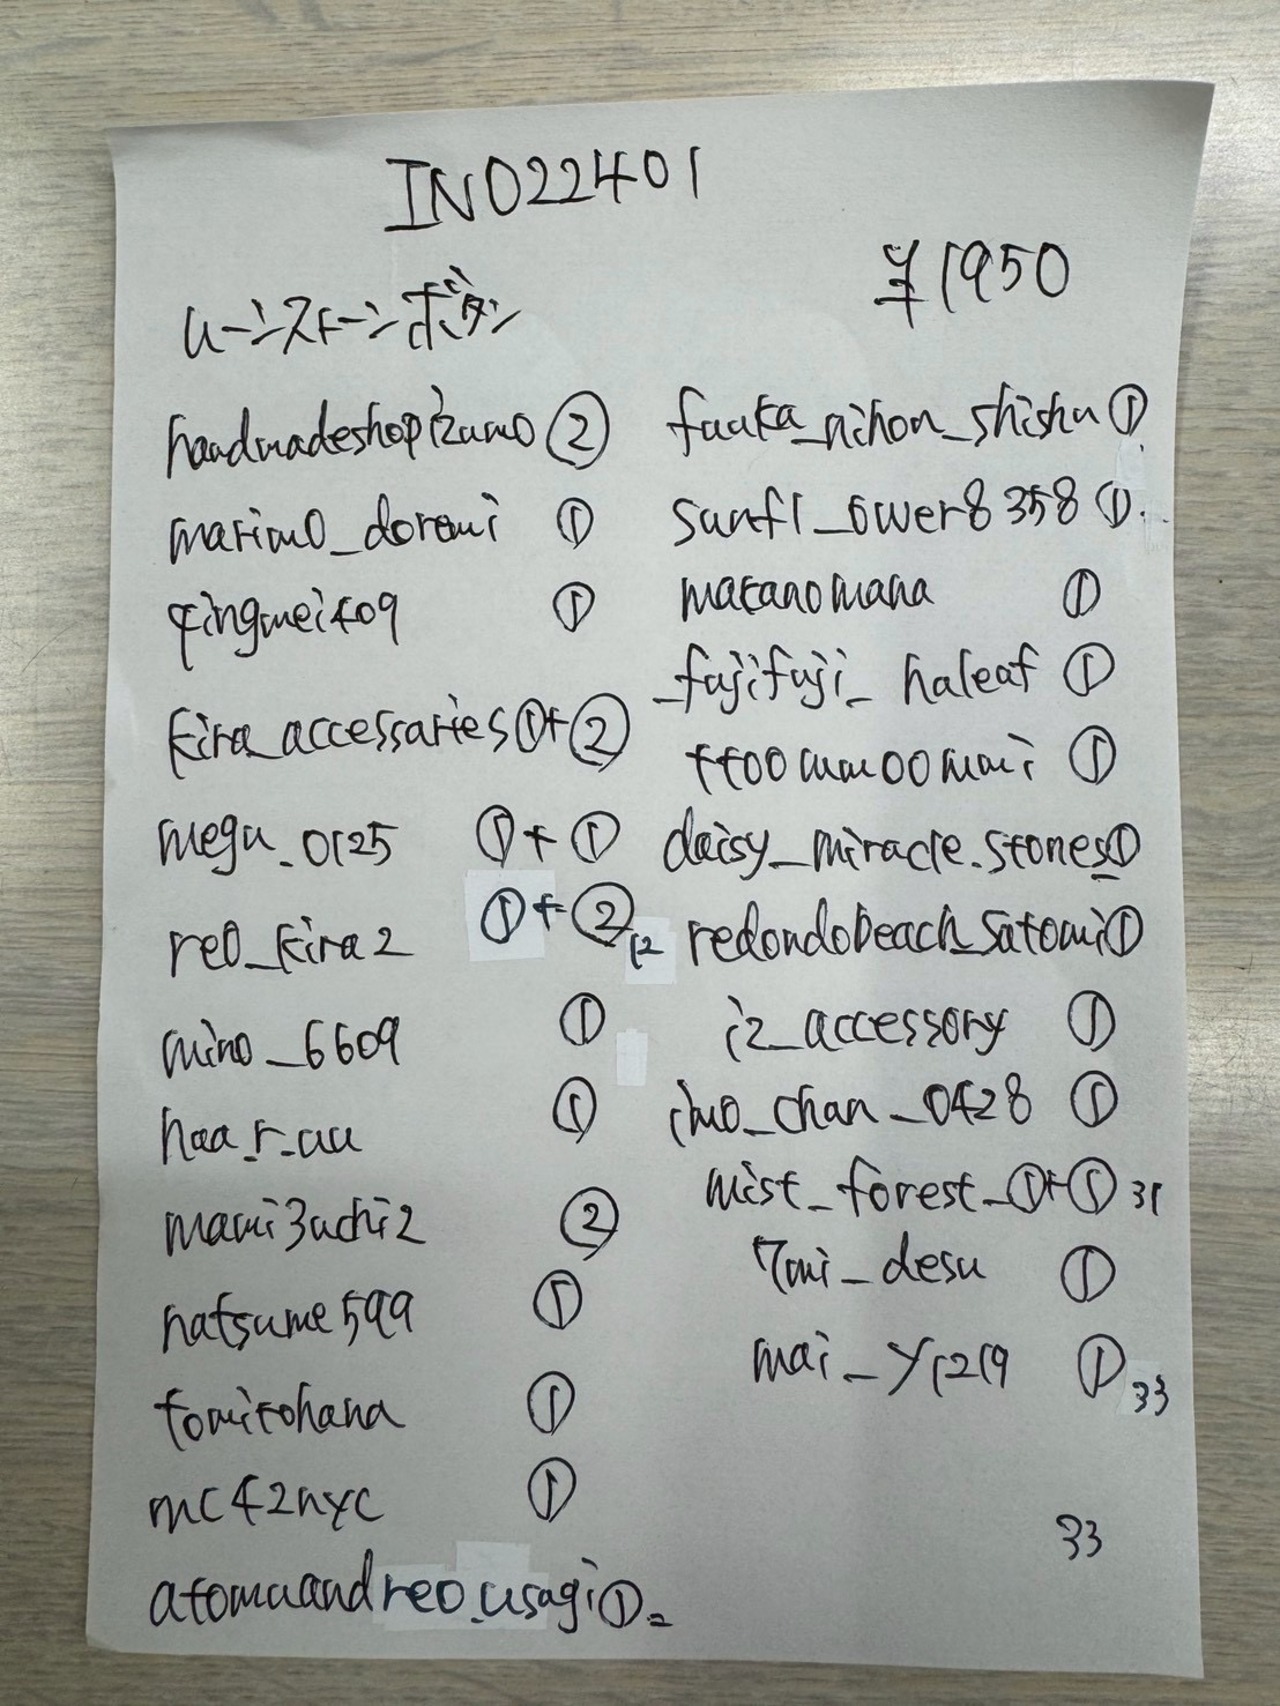 INO22401
¥1950
ムーンストーンボタン
handmadeshopizumo ②
marimo_doremi ①
qingmei409 ①
kira_accessaries①+②
megu_0125 ①+①
reo_kira2 ①+② 12
mino_6609 ①
haa_r_uu ①
mami3uchi2 ②
natsume599 ①
tomitohana ①
mc42nyc ①
atomuandreo_usagi①
fuuka_nihon_shishu①
sunfl_ower8358 ①
matanomana ①
_fujifuji_haleaf ①
tt00mm00mai ①
daisy_miracle.stones①
redondobeach_satomi①
iz_accessory ①
imo_chan_0428 ①
mist_forest_①+① 31
7mi_desu ①
mai_y1219 ① 33
33